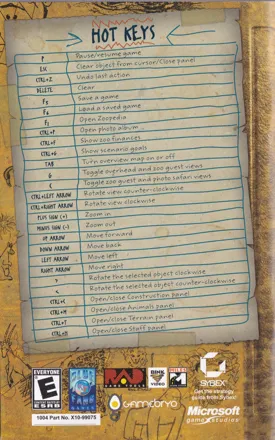 HOT KEYS
P Pause/resume game
ESC Clear object from cursor/Close panel
CTRL+Z Undo last action
DELETE Clear
F5 Save a game
F4 Load a saved game
F2 Open Zoopedia
CTRL+P Open photo album
CTRL+F Show zoo finances
CTRL+G Show scenario goals
TAB Turn overview map on or off
Toggle overhead and zoo guest views
C Toggle zoo guest and photo safari views
CTRL+LEFT ARROW Rotate view counter-clockwise
CTRL+RIGHT ARROW Rotate view clockwise
PLUS SIGN (+) Zoom in
MINUS SIGN (-) Zoom out
UP ARROW Move forward
DOWN ARROW Move back
LEFT ARROW Move left
RIGHT ARROW Move right
> Rotate the selected object clockwise
< Rotate the selected object counter-clockwise
CTRL+C Open/close Construction panel
Open/close Animals panel
CTRL+T Open/close Terrain panel
Open/close Staff panel
EVERYONE
E
ESRB
BLUE FANG GAMES
RAD
BINK VIDEO
MILES
GAMEBRYO
SYBEX
Get the strategy
guide from Sybex!
Microsoft
game studios
1004 Part No. X10-99075